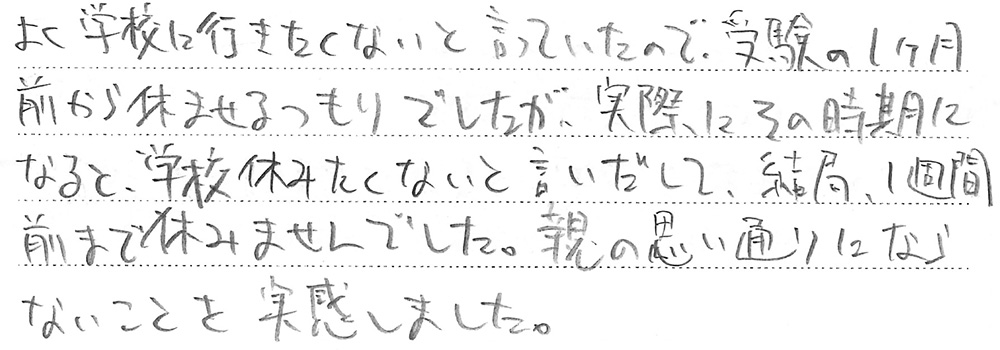 よく学校に行きたくないと言っていたので、受験の1ヶ月
前から休ませるつもりでしたが、実際にその時期に
なると、学校休みたくないと言いだして、結局、1週間
前まで休みませんでした。親の思い通りになら
ないことを実感しました。